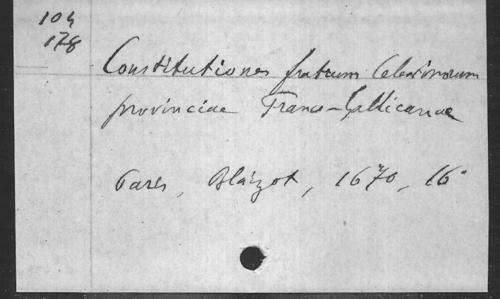 104
178
Constitutiones fratrum Celestinorum
provinciae Franco-Gallicanae
Paris, Blaizot, 1670, 16°